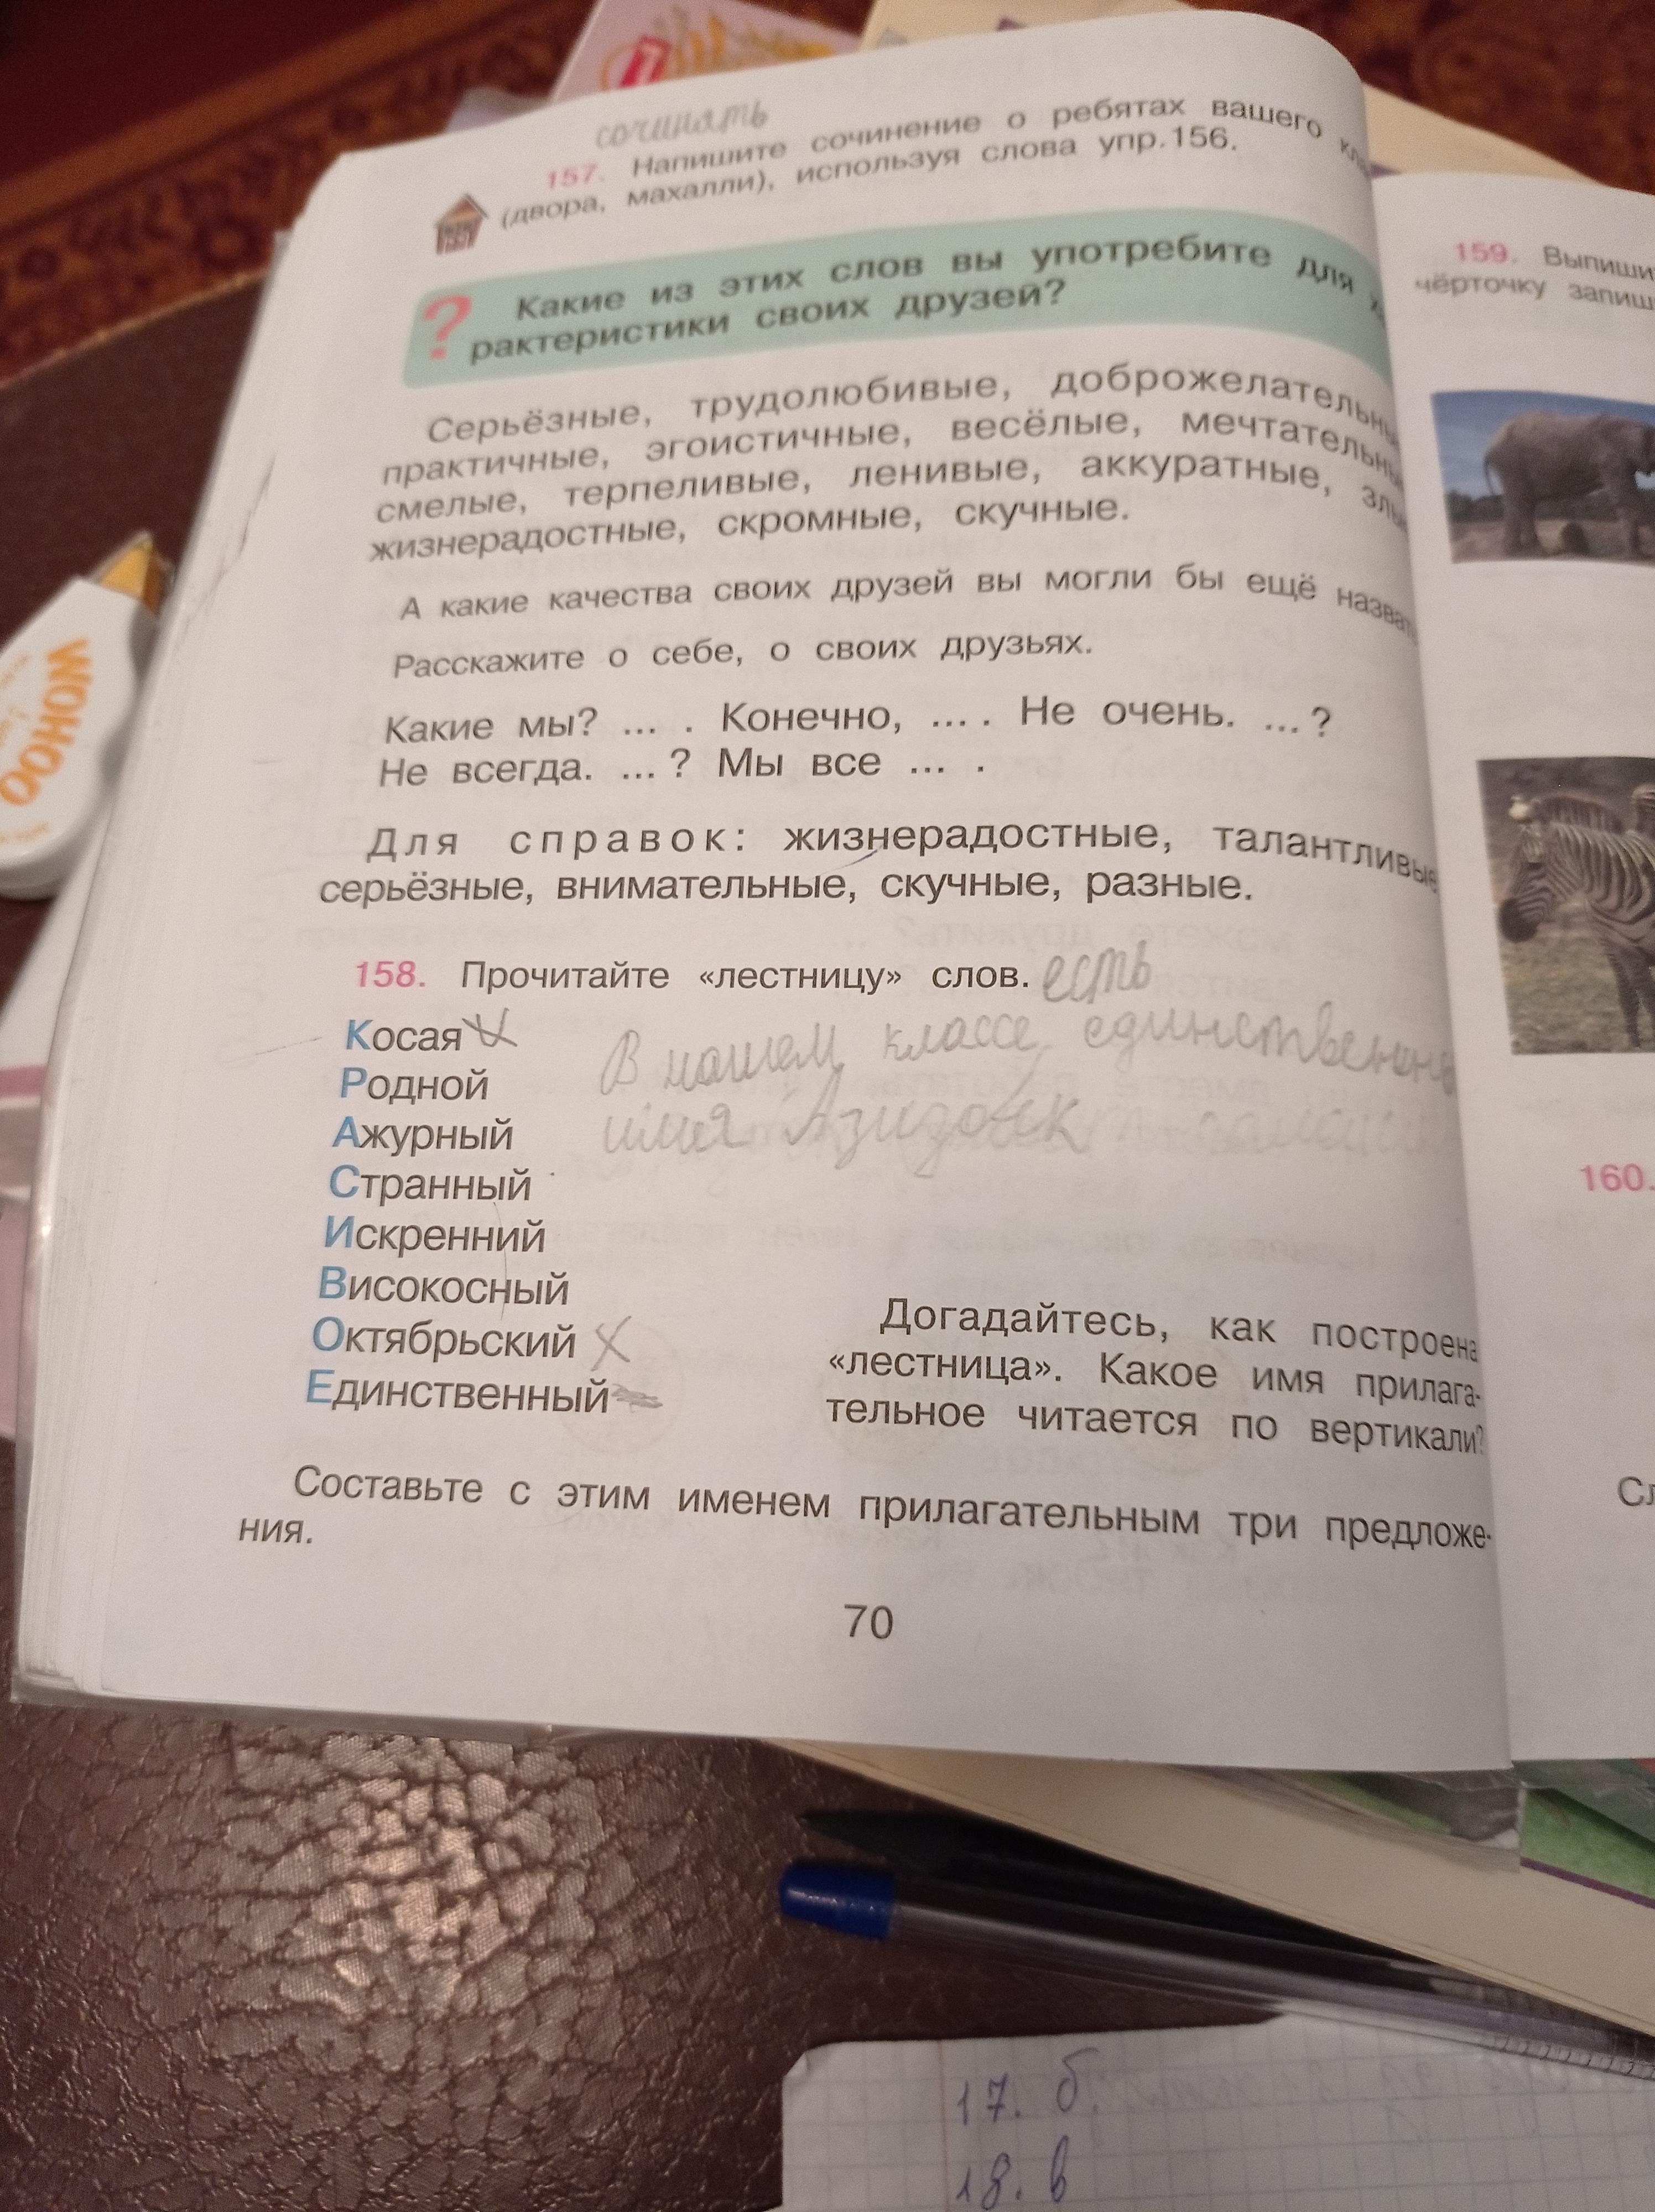 сочинять
157. Напишите сочинение о ребятах вашего
(двора, махалли), используя слова упр.156.
? Какие из этих слов вы употребите для ха-
рактеристики своих друзей?
Серьёзные, трудолюбивые, доброжелательны
практичные, эгоистичные, весёлые, мечтательны
смелые, терпеливые, ленивые, аккуратные, злы
жизнерадостные, скромные, скучные.
А какие качества своих друзей вы могли бы ещё назват
Расскажите о себе, о своих друзьях.
Какие мы? ... . Конечно, ... . Не очень. ... ?
Не всегда. ... ? Мы все ... .
Для справок: жизнерадостные, талантливые
серьёзные, внимательные, скучные, разные.
158. Прочитайте «лестницу» слов. есть
Косая
В нашем классе единственно
Родной
имя
Ажурный
Странный
Искренний
Високосный
Октябрьский
Единственный
Догадайтесь, как построена
«лестница». Какое имя прилага-
тельное читается по вертикали?
Составьте с этим именем прилагательным три предложе-
ния.
70
159. Выпиши
чёрточку запиш
160.
Сл
WOHOO
17. б.
18. в